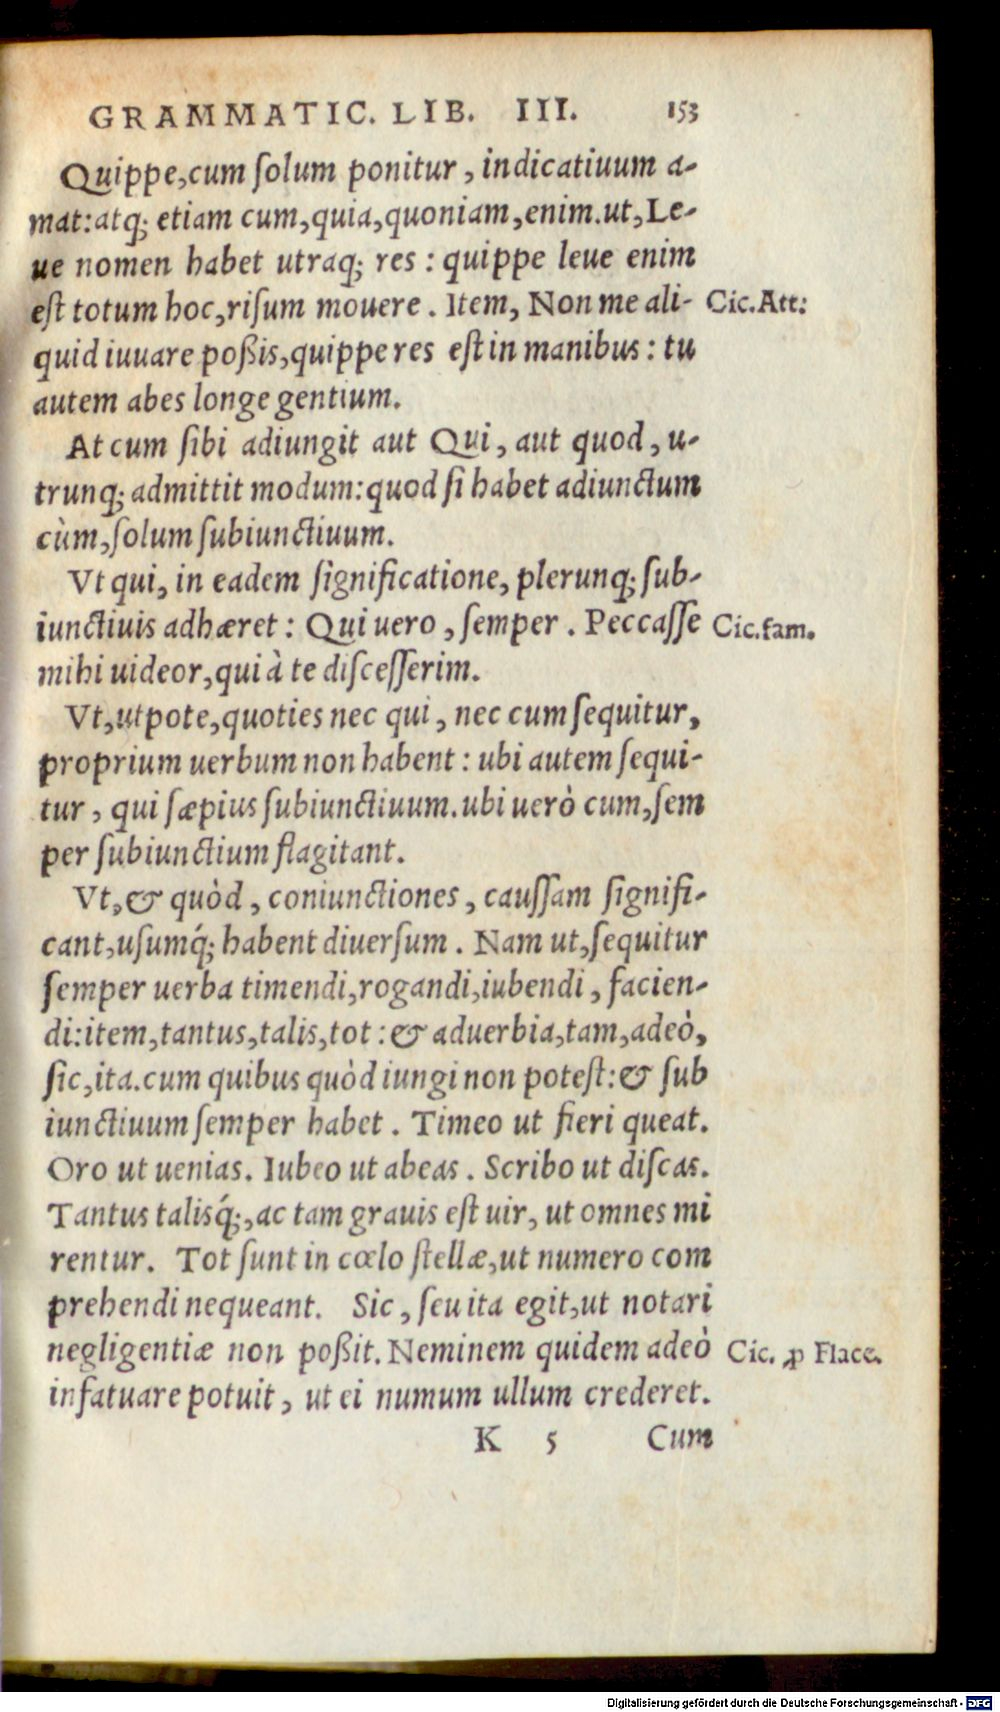 GRAMMATIC. LIB. III. 153
Quippe, cum ſolum ponitur, indicatiuum a-
mat: atq; etiam cum, quia, quoniam, enim. ut, Le-
ue nomen habet utraq; res: quippe leue enim
eſt totum hoc, riſum mouere. Item, Non me ali- Cic. Att:
quid iuuare poßis, quippe res eſt in manibus: tu
autem abes longe gentium.
At cum ſibi adiungit aut Qui, aut quod, u-
trunq; admittit modum: quod ſi habet adiunctum
cùm, ſolum ſubiunctiuum.
Vt qui, in eadem ſignificatione, plerunq; ſub-
iunctiuis adhæret: Qui uero, ſemper. Peccaſſe Cic. fam.
mihi uideor, qui à te diſceſſerim.
Vt, utpote, quoties nec qui, nec cum ſequitur,
proprium uerbum non habent: ubi autem ſequi-
tur, qui ſæpius ſubiunctiuum. ubi uerò cum, ſem
per ſubiunctium flagitant.
Vt, & quòd, coniunctiones, cauſſam ſignifi-
cant, uſumq́; habent diuerſum. Nam ut, ſequitur
ſemper uerba timendi, rogandi, iubendi, facien-
di: item, tantus, talis, tot: & aduerbia, tam, adeò,
ſic, ita. cum quibus quòd iungi non poteſt: & ſub
iunctiuum ſemper habet. Timeo ut fieri queat.
Oro ut uenias. Iubeo ut abeas. Scribo ut diſcas.
Tantus talisq́;, ac tam grauis eſt uir, ut omnes mi
rentur. Tot ſunt in cœlo ſtellæ, ut numero com
prehendi nequeant. Sic, ſeu ita egit, ut notari
negligentiæ non poßit. Neminem quidem adeò Cic. ꝓ Flacc.
infatuare potuit, ut ei numum ullum crederet.
K 5 Cum
Digitalisierung gefördert durch die Deutsche Forschungsgemeinschaft - DFG